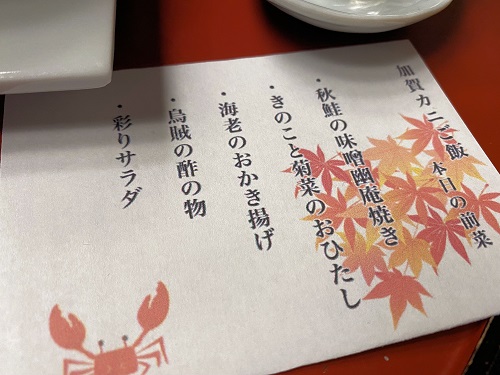 加賀カニご飯 本日の前菜
・秋鮭の味噌幽庵焼き
・きのこと菊菜のおひたし
・海老のおかき揚げ
・烏賊の酢の物
・彩りサラダ